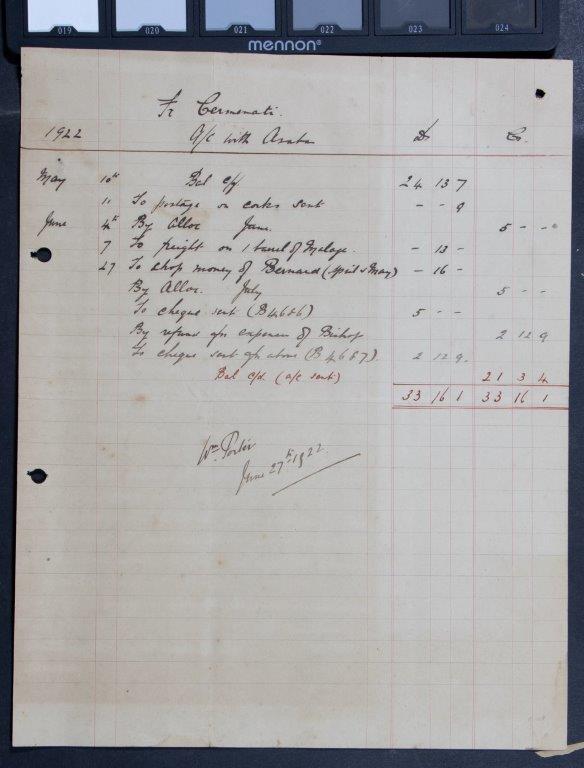 019 020 021 022 023 024
mennon®
Fr Cermenati.
1922 A/c with Asaba Dr Cr.
May 10th Bal c/f 24 13 7
11 To postage on corks sent - - 9
June 4th By Alloc June. 5 - -
7 To freight on 1 barrel of Malaga. - 13 -
27 To chop money of Bernard (April & May) - 16 -
By Alloc. July 5 - -
To cheque sent (B4686) 5 - -
By refund a/c expenses of Bishop 2 12 9
To cheque sent a/c above (B4687) 2 12 9.
Bal c/d. (a/c sent) 21 3 4
33 16 1 33 16 1
Wm. Porter
June 27th 1922.